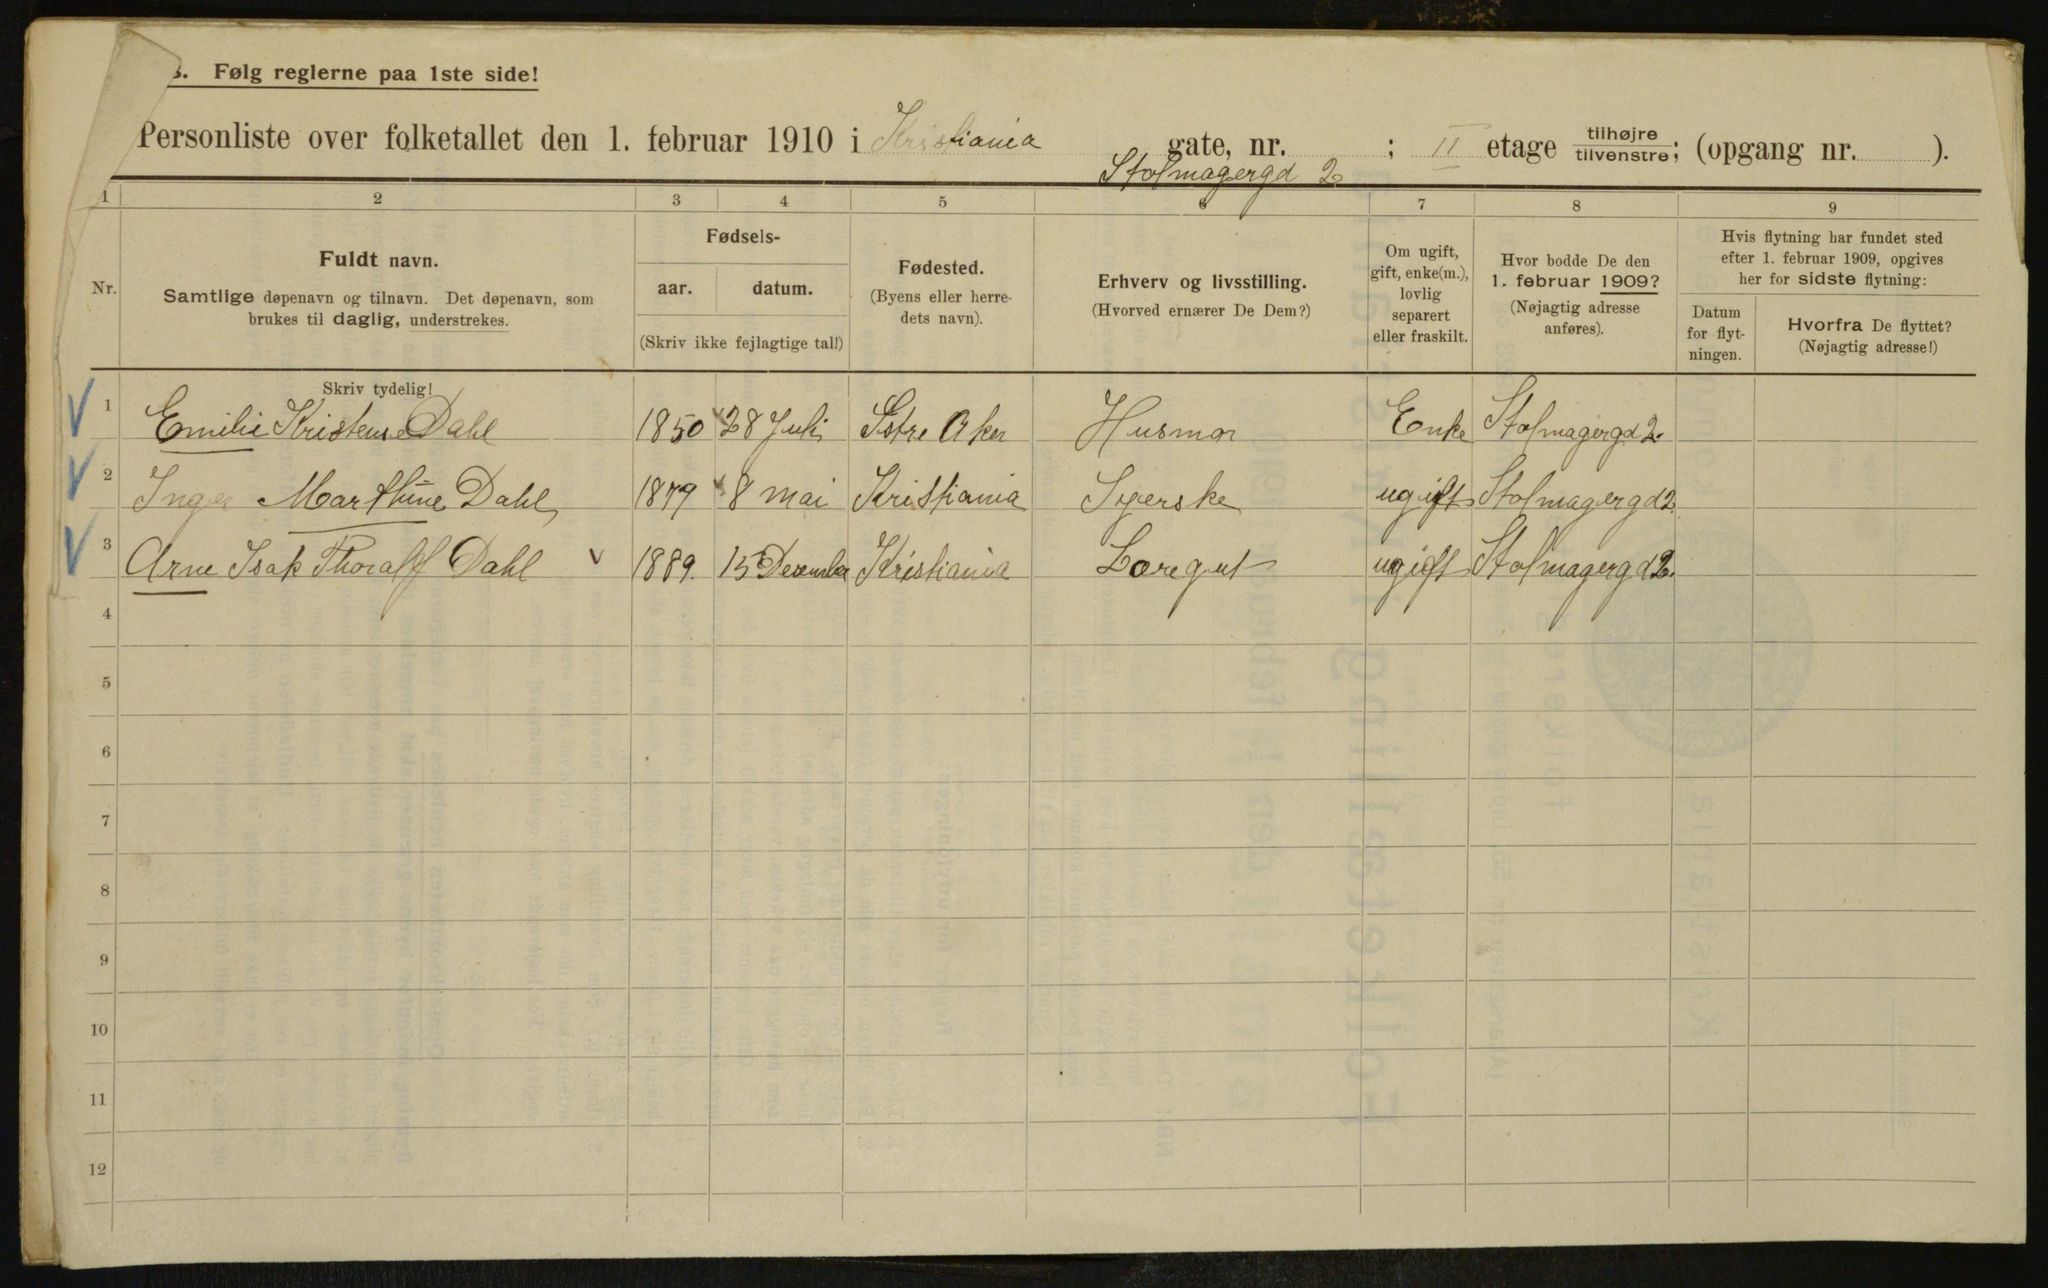 s. Følg reglerne paa 1ste side!
Personliste over folketallet den 1. februar 1910 i Kristiania gate, nr. ; II etage tilhøjre/tilvenstre; (opgang nr. ).
Stolmagergd 2
1 2 3 4 5 6 7 8 9
Nr.
Fuldt navn.
Samtlige døpenavn og tilnavn. Det døpenavn, som
brukes til daglig, understrekes.
Fødsels-
aar. datum.
(Skriv ikke fejlagtige tal!)
Fødested.
(Byens eller herre-
dets navn).
Erhverv og livsstilling.
(Hvorved ernærer De Dem?)
Om ugift,
gift, enke(m.),
lovlig
separert
eller fraskilt.
Hvor bodde De den
1. februar 1909?
(Nøjagtig adresse
anføres).
Hvis flytning har fundet sted
efter 1. februar 1909, opgives
her for sidste flytning:
Datum
for flyt-
ningen.
Hvorfra De flyttet?
(Nøjagtig adresse!)
Skriv tydelig!
1 Emilie Kristense Dahl 1850 28 Juli Østre Aker Husmor Enke Stolmagergd 2.
2 Inga Marthine Dahl 1879 8 mai Kristiania Syerske ugift Stolmagergd 2.
3 Arne Isak Thoralf Dahl v 1889. 15 Desember Kristiania Læregut ugift Stolmagergd 2.
4
5
6
7
8
9
10
11
12